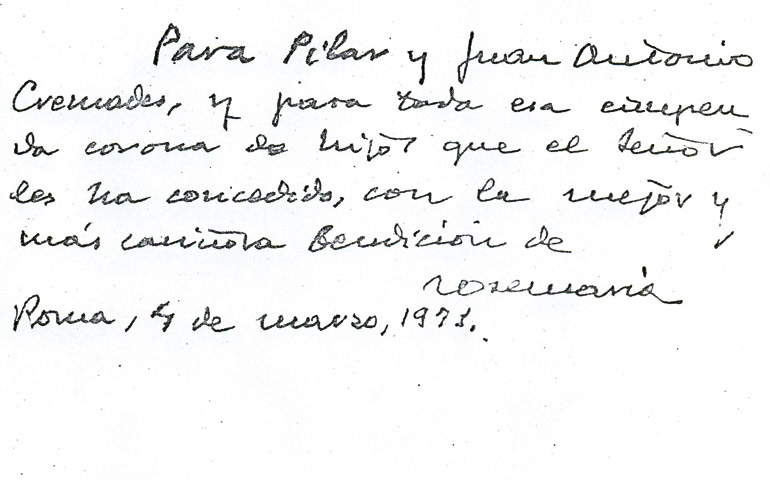 Para Pilar y Juan Antonio
Cremades, y para toda esa estupen
da corona de hijos que el Señor
les ha concedido, con la mejor y
más cariñosa Bendición de
Josemaría
Roma, 4 de marzo, 1971.